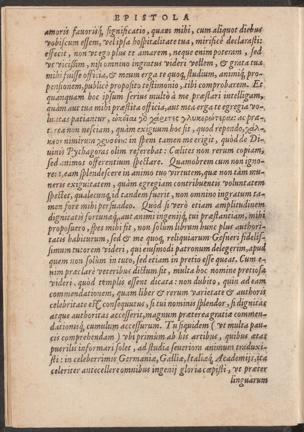 EPISTOLA
amoris fauorisq́; significatio, quam mihi, cum aliquot diebus
vobiscum essem, vel ipsa hospitalitate tua, mirificè declarasti:
effecit, non vt ego plus te amarem, neque enim poteram, sed
vt vicissim, nisi omnino ingratus videri vellem, & grata tua
mihi fuisse officia, & meum erga te quoq; studium, animiq́; pro-
pensionem, publicè proposito testimonio, tibi comprobarem. Et
quanquam hoc ipsum serius multò à me præstari intelligam,
quàm aut tua mihi præstita officia, aut mea erga te egregia vo-
luntas patiantur, ὠκεῖαι γὰρ χάριτες γλυκερώτεραι: ac præt-
erea non nesciam, quàm exiguum hoc sit, quod rependo, χάλ-
κεον nimirum χρυσείων: in spem tamen me erigit, quòd de Di-
uino Pythagoras olim referebat: Cælites non rerum copiam,
sed animos offerentium spectare. Quamobrem cum non igno-
res, eam splendescere in animo tuo virtutem, qua non tàm mu-
neris exiguitatem, quàm egregiam contribuentis voluntatem
spectet, qualecunq; id tandem fuerit, non omnino ingratum ta-
men fore mihi persuadeo. Quod si verò etiam amplitudinem
dignitatis fortunaq́;, aut animi ingenijq́; tui præstantiam, mihi
proposuero, spes mihi fit, non solùm librum hunc plus authori-
tatis habiturum, sed & me quoq, reliquiarum Gesneri fidelis-
simum tutorem videri, qui eiusmodi patronum delegerim, apud
quem non solùm in tuto, sed etiam in pretio esse queat. Cum e-
nim præclarè veteribus dictum sit, multa hoc nomine pretiosa
videri, quòd templis essent dicata: non dubito, quin ad eam
commendationem, quam liber & rerum varietate & authoris
celebritate est consequutus, si tui nominis splendor, si dignitas
atque authoritas accesserit, magnum præterea gratiæ commen-
dationisq́; cumulum accessurum. Tu siquidem (vt multa pau-
cis comprehendam) vbi primùm ab his artibus, quibus ætas
puerilis informari solet, ad studia seueriora animum traduxi-
sti: in celeberrimis Germaniæ, Galliæ, Italiæq́; Academijs, ita
celeriter antecellere omnibus ingenij gloria cœpisti, vt præter
linguarum